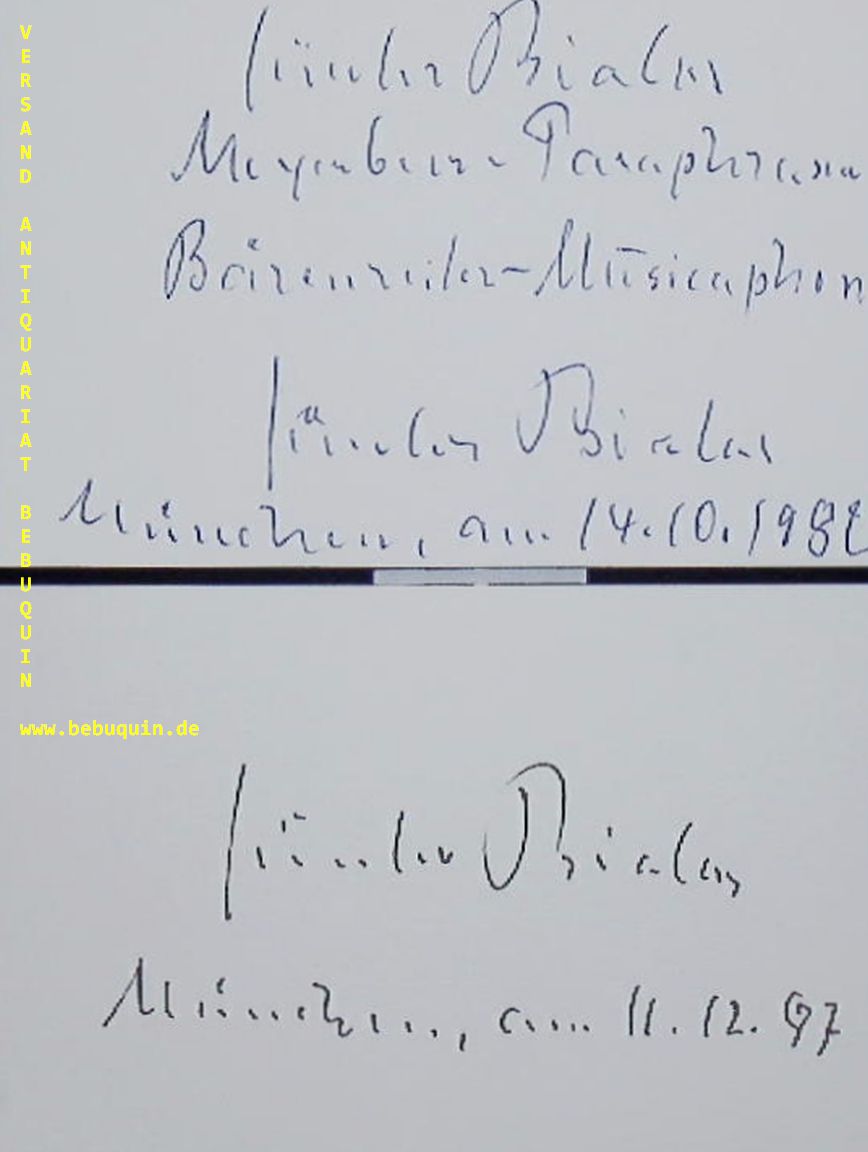 Günter Bialas
Meyerbeer-Paraphrasen
Bärenreiter-Musicaphon
Günter Bialas
München, am 14.10.1982
Günter Bialas
München, am 11.12.97
VERSAND ANTIQUARIAT BEBUQUIN
www.bebuquin.de